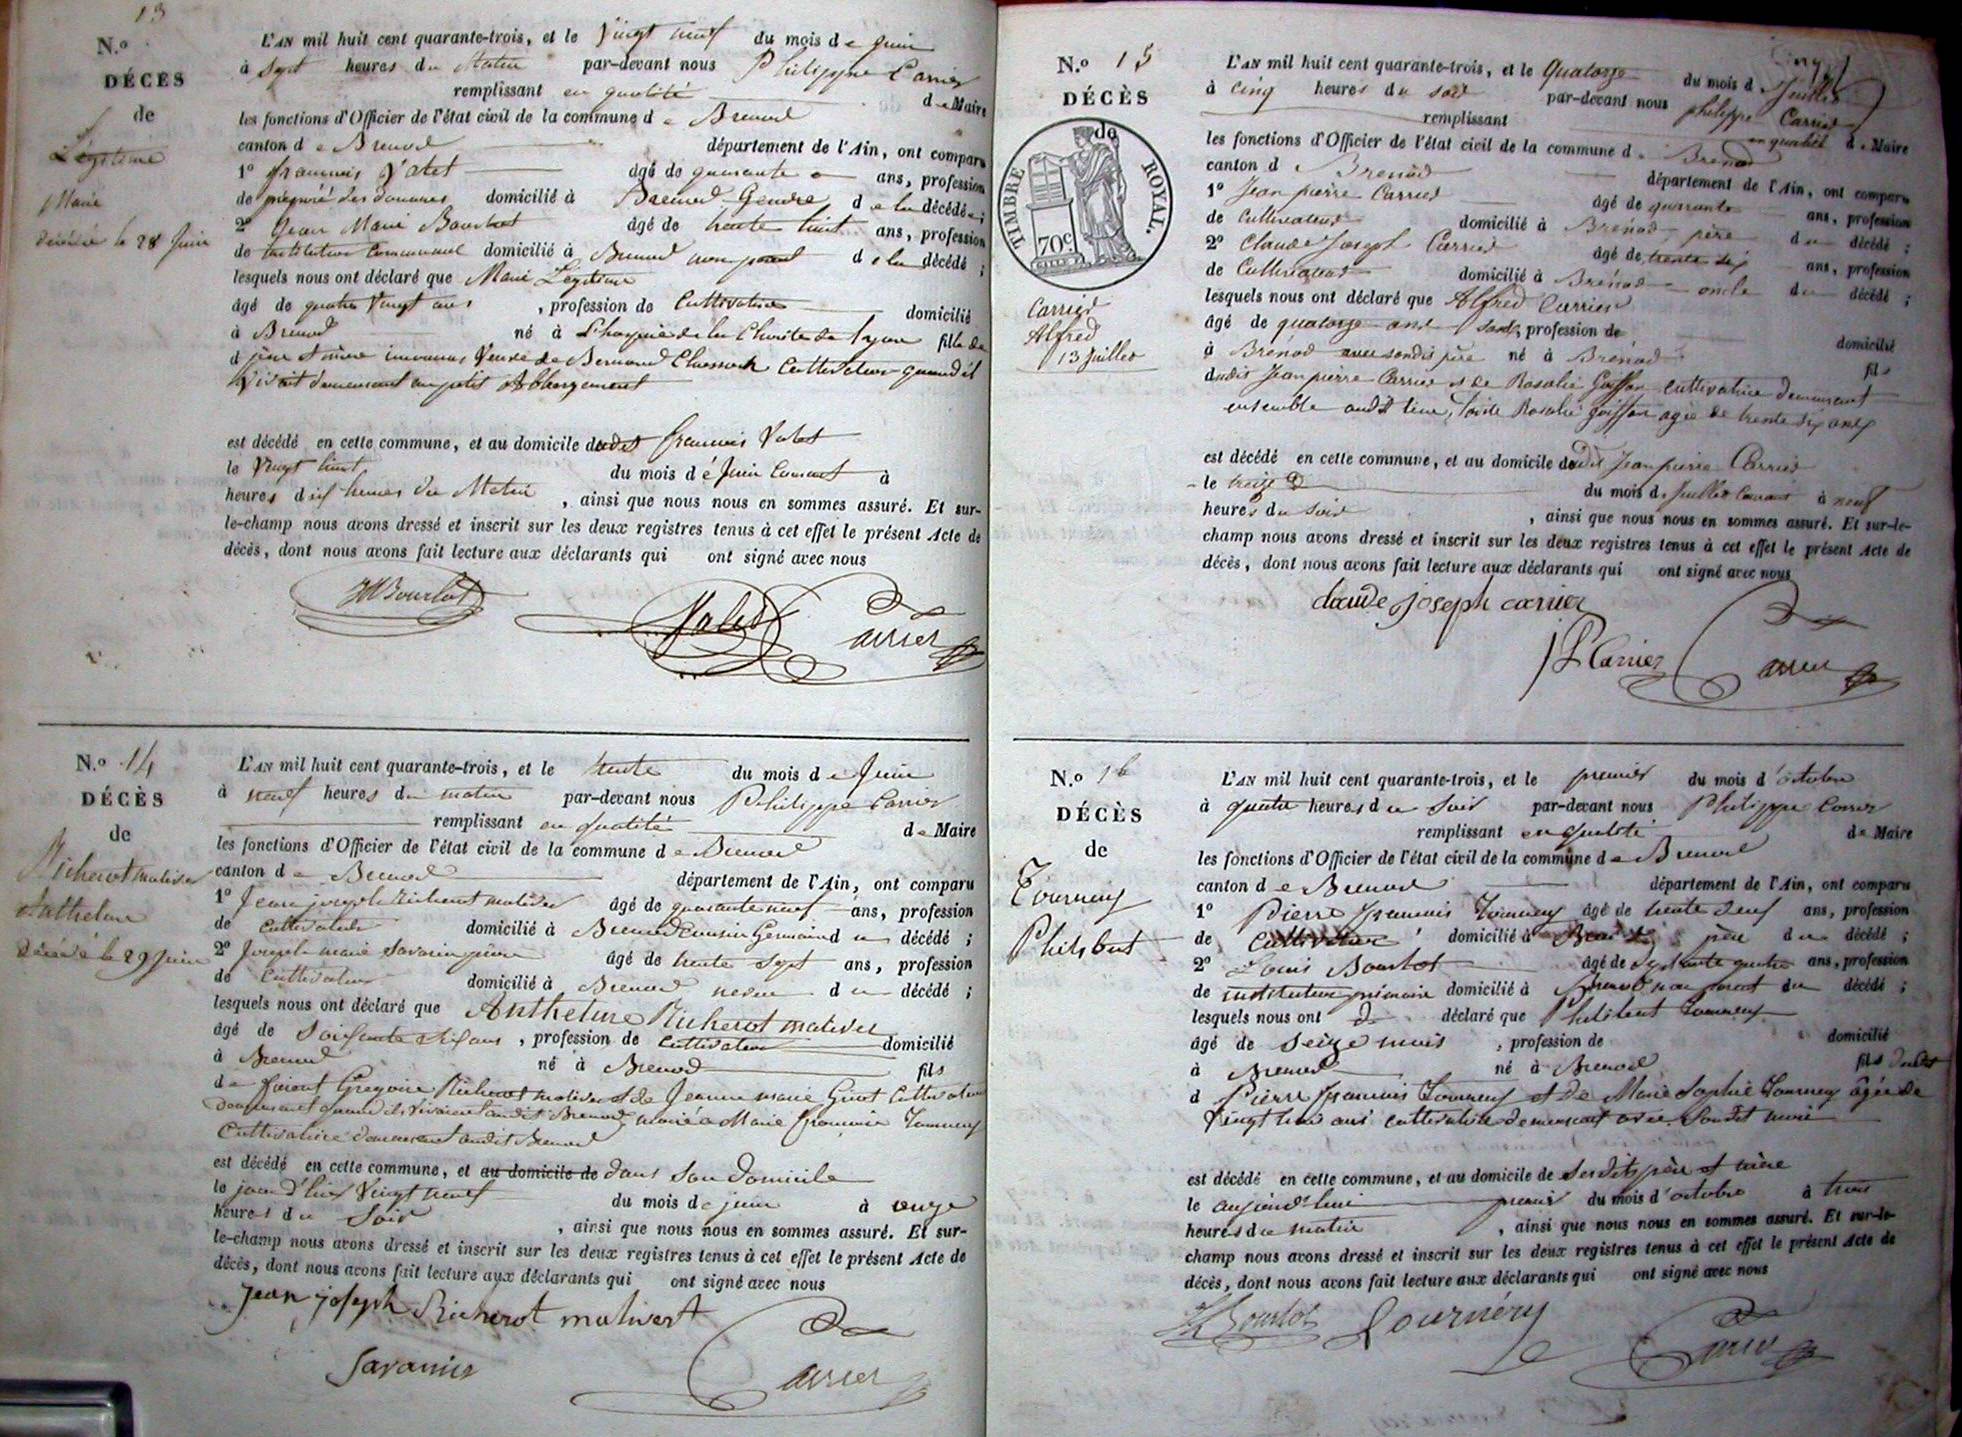 13
N.º
DÉCÈS
de
Légitime
Marie
décédée le 28 Juin
L'AN mil huit cent quarante-trois, et le vingt neuf du mois de Juin
à sept heures du Matin par-devant nous Philippe Carrier
remplissant en qualité de Maire
les fonctions d'Officier de l'état civil de la commune de Brenod
canton de Brenod département de l'Ain, ont comparu
1º francois Valet âgé de quarante ans, profession
de préposé des douanes domicilié à Brenod Gendre de la décédée;
2º Jean Marie Bourbot âgé de trente huit ans, profession
de Instituteur Communal domicilié à Brenod non parent de la décédé;
lesquels nous ont déclaré que Marie Légitime
âgé de quatre vingt ans, profession de Cultivatrice domicilié
à Brenod né à L'hospice de la Charité de Lyon fille de
d père et mère inconnus Veuve de Bernard Cultivateur quand il
vivait demeurant au petit Abbergement
est décédé en cette commune, et au domicile dudit francois Valet
le vingt huit du mois de Juin Courant à
heures dix heures du Matin, ainsi que nous nous en sommes assuré. Et sur-
le-champ nous avons dressé et inscrit sur les deux registres tenus à cet effet le présent Acte de
décès, dont nous avons fait lecture aux déclarants qui ont signé avec nous
Valet Carrier
N.º 14
DÉCÈS
de
Richerot malivert
Anthelme
décédé le 29 Juin
L'AN mil huit cent quarante-trois, et le trente du mois de Juin
à neuf heures du matin par-devant nous Philippe Carrier
remplissant en qualité de Maire
les fonctions d'Officier de l'état civil de la commune de Brenod
canton de Brenod département de l'Ain, ont comparu
1º Jean joseph Richerot malivert âgé de quarante neuf ans, profession
de Cultivateur domicilié à Brenod cousin Germain du décédé;
2º Joseph marie Savarin âgé de trente sept ans, profession
de Cultivateur domicilié à Brenod neveu du décédé;
lesquels nous ont déclaré que Anthelme Richerot malivert
âgé de soixante six ans, profession de cultivateur domicilié
à Brenod né à Brenod fils
de Grégoire Richerot malivert et de Jeanne marie Cultivateurs
demeurant quand ils vivaient audit Brenod, marié à Marie francoise Tournery
Cultivatrice demeurant audit Brenod
est décédé en cette commune, et au domicile de dans son domicile
le jour d'hier vingt neuf du mois de juin à onze
heures du Soir, ainsi que nous nous en sommes assuré. Et sur-
le-champ nous avons dressé et inscrit sur les deux registres tenus à cet effet le présent Acte de
décès, dont nous avons fait lecture aux déclarants qui ont signé avec nous
Jean joseph Richerot malivert
Savarin Carrier
N.º 15
DÉCÈS
de
TIMBRE ROYAL.
70c.
Carrier
Alfred
13 Juillet
L'AN mil huit cent quarante-trois, et le Quatorze du mois de Juillet
à cinq heures du soir par-devant nous philippe Carrier
remplissant en qualité de Maire
les fonctions d'Officier de l'état civil de la commune de Brénod
canton de Brenod département de l'Ain, ont comparu
1º Jean pierre Carrier âgé de quarante ans, profession
de Cultivateur domicilié à Brénod père du décédé;
2º Claude Joseph Carrier âgé de trente six ans, profession
de Cultivateur domicilié à Brénod oncle du décédé;
lesquels nous ont déclaré que Alfred Carrier
âgé de quatorze ans, profession de domicilié
à Brénod avec sondit père né à Brénod fils
dudit Jean pierre Carrier et de Rosalie Goiffon cultivatrice demeurant
ensemble audit lieu, ladite Rosalie goiffon agée de trente six ans
est décédé en cette commune, et au domicile dudit Jean pierre Carrier
le treize du mois de Juillet Courant à neuf
heures du soir, ainsi que nous nous en sommes assuré. Et sur-le-
champ nous avons dressé et inscrit sur les deux registres tenus à cet effet le présent Acte de
décès, dont nous avons fait lecture aux déclarants qui ont signé avec nous
claude joseph carrier
JP Carrier Carrier
N.º 16
DÉCÈS
de
Tournery
Philibert
L'AN mil huit cent quarante-trois, et le premier du mois d'octobre
à quatre heures du soir par-devant nous Philippe Carrier
remplissant en qualité de Maire
les fonctions d'Officier de l'état civil de la commune de Brenod
canton de Brenod département de l'Ain, ont comparu
1º Pierre francois Tournery âgé de trente deux ans, profession
de Cultivateur domicilié à Brenod père du décédé;
2º Louis Bourbot âgé de septante quatre ans, profession
de instituteur primaire domicilié à Brenod non parent du décédé;
lesquels nous ont déclaré que Philibert Tournery
âgé de seize mois, profession de domicilié
à Brenod né à Brenod fils dudit
d Pierre francois Tournery et de Marie Sophie Tournery âgée de
vingt trois ans cultivatrice demeurant avec sondit mari
est décédé en cette commune, et au domicile de sesdits père et mère
le aujourd'hui premier du mois d'octobre à trois
heures du matin, ainsi que nous nous en sommes assuré. Et sur-le-
champ nous avons dressé et inscrit sur les deux registres tenus à cet effet le présent Acte de
décès, dont nous avons fait lecture aux déclarants qui ont signé avec nous
Bourbot Tournery Carrier